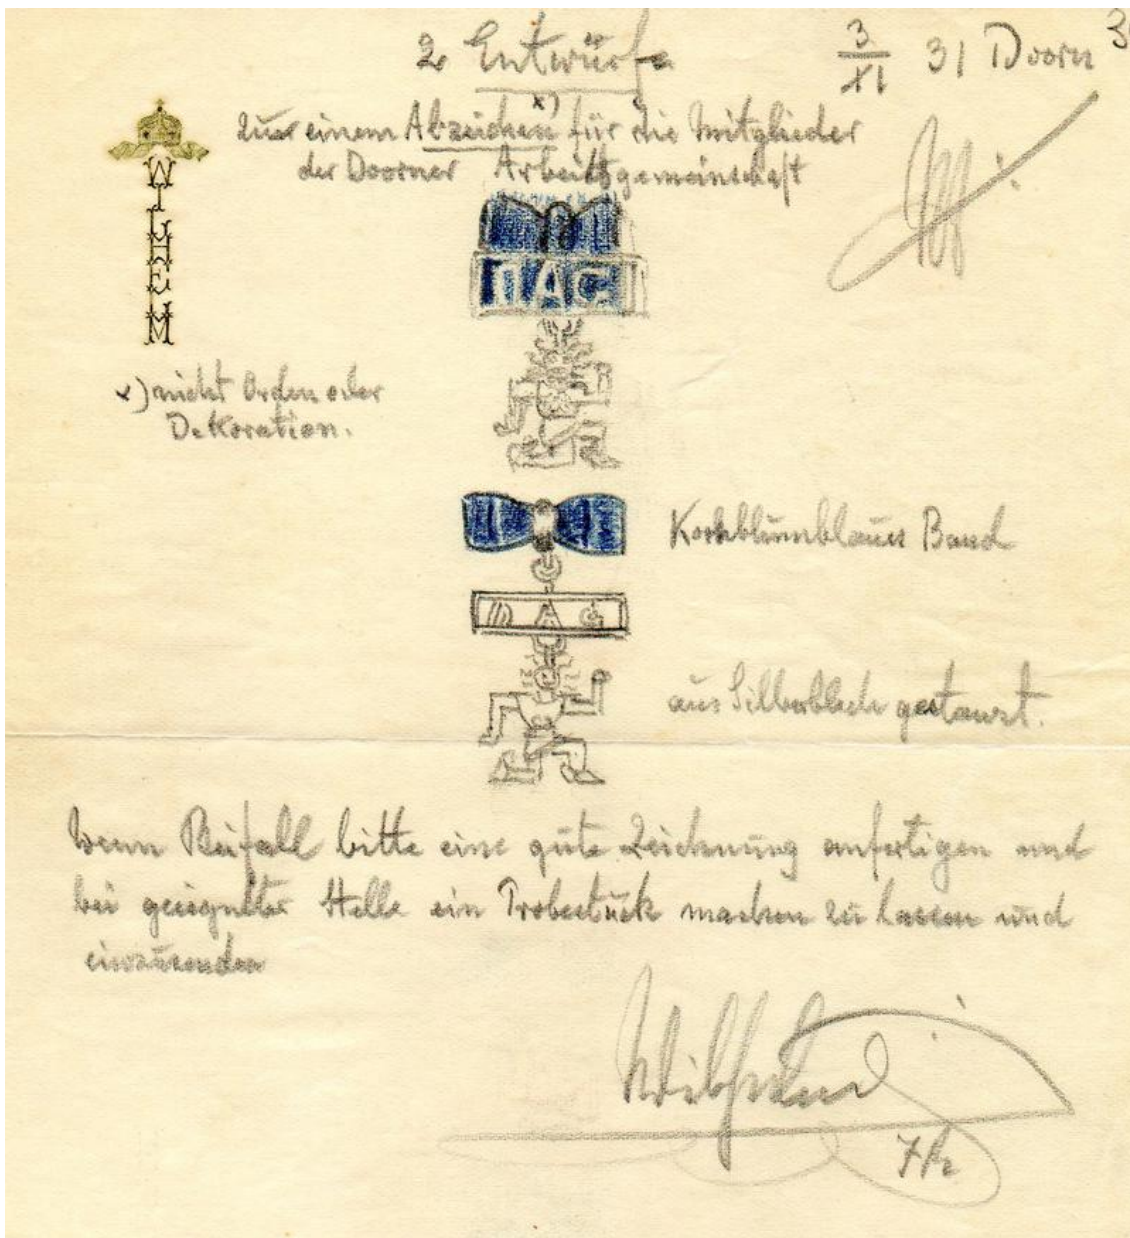 2 Entwürfe
3/XI 31 Doorn
x)
zur einem Abzeichen für die Mitglieder
der Doorner Arbeitsgemeinschaft
WILHELM
DAG
x) nicht Orden oder
Dekoration.
Kornblumblaues Band
DAG
aus Silberblech gestanzt.
Wenn Beifall bitte eine gute Zeichnung anfertigen und
bei geeigneter Stelle ein Probestück machen zu lassen und
einzusenden
Wilhelm
IR